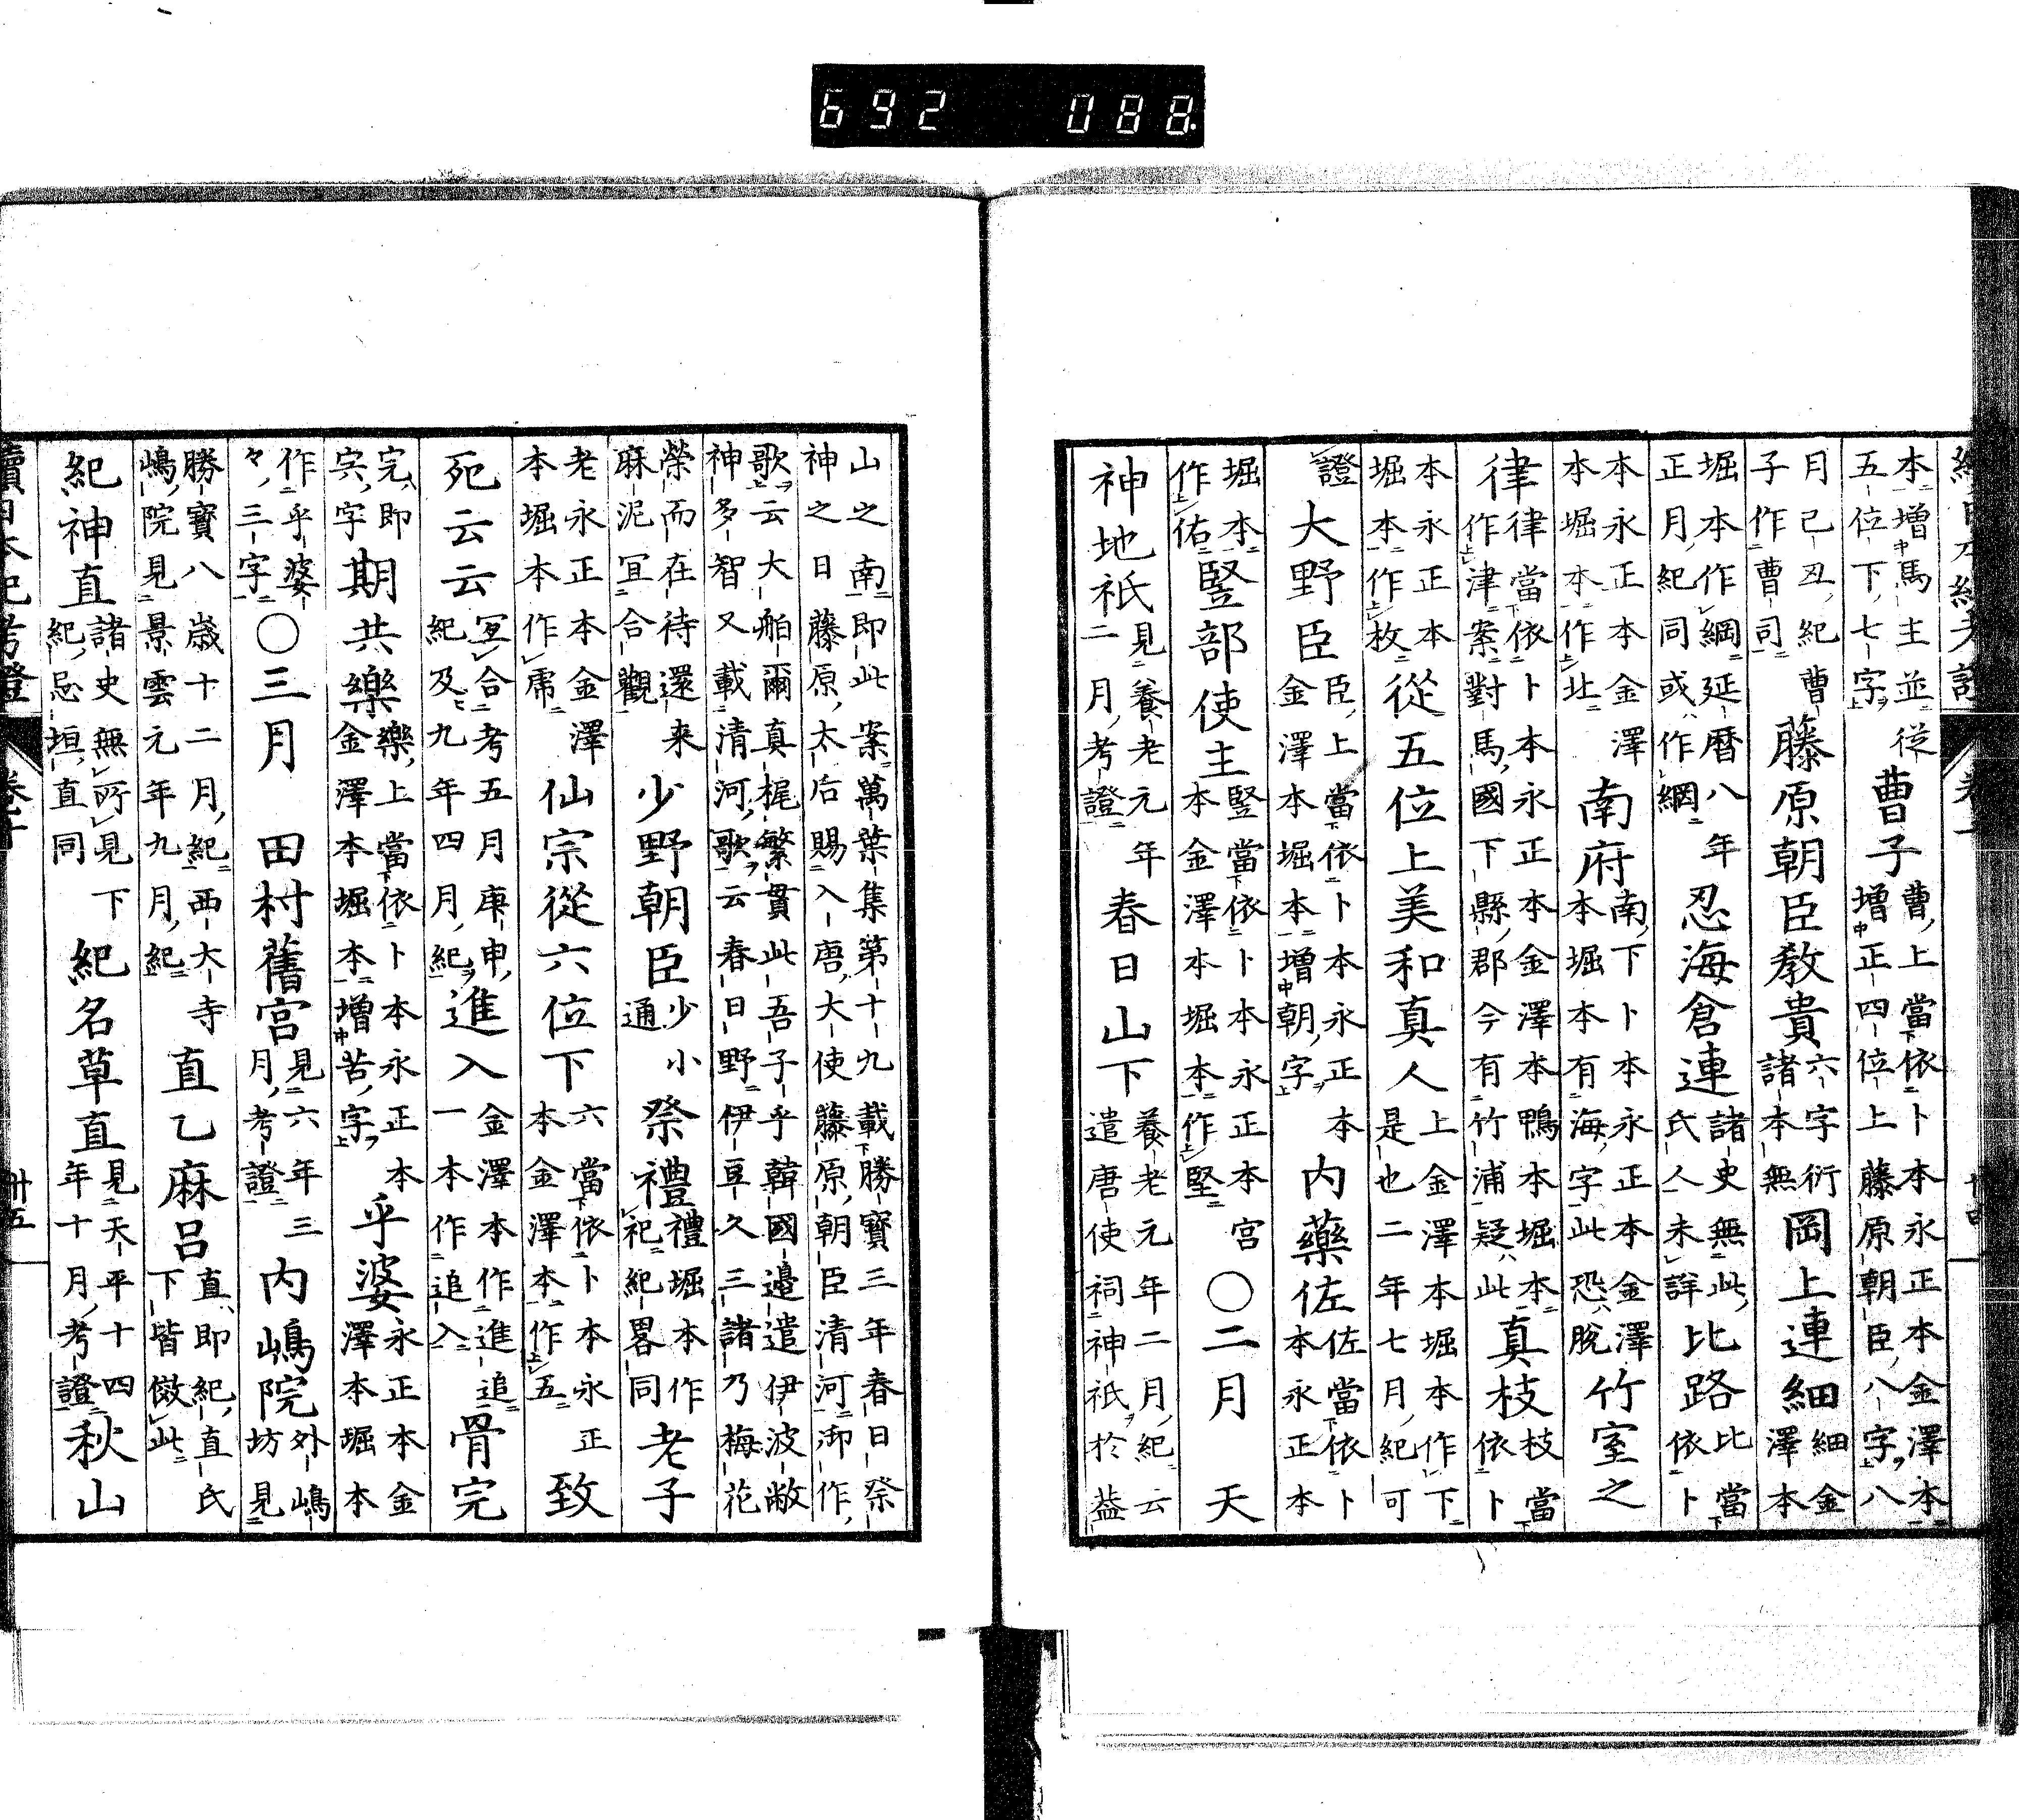 692 088.
本增馬主並從五位下七字曹子曹上當依卜本永正本金澤本增正四位上藤原朝臣八字八
月己丑紀曹子作曹司藤原朝臣敎貴六字衍諸本無岡上連細細金澤本
堀本作綱延曆八年正月紀同或作網忍海倉連諸史無此氏人未詳比路比當依卜
本永正本金澤本堀本作北南府南下卜本永正本金澤本堀本有海字此恐脫竹室之
律律當依卜本永正本金澤本鴨本堀本作津案對馬國下縣郡今有竹浦疑此真枝枝當依卜
本永正本堀本作枚從五位上美和真人上金澤本堀本作下是也二年七月紀可
證大野臣臣上當依卜本永正本金澤本堀本增朝字內藥佐佐當依卜本永正本
堀本作佑竪部使主竪當依卜本永正本宮本金澤本堀本作堅〇二月天
神地祇見養老元年二月考證春日山下養老元年二月紀云遣唐使祠神祇於葢
山之南即此案萬葉集第十九載勝寶三年春日祭神之日藤原太后賜入唐大使藤原朝臣清河御作
歌云大舶爾真梶繁貫此吾子乎韓國邊遣伊波敝神多智又載清河歌云春日野伊豆久三諸乃梅花
榮而在待還来麻泥冝合觀少野朝臣少小通祭禮禮堀本作祀紀畧同老子
老永正本金澤本堀本作席仙宗從六位下六當依卜本永正本金澤本作五致
死云云冝合考五月庚申紀及九年四月紀進入金澤本作進追一本作追入骨完
完即宍字期共樂樂上當依卜本永正本金澤本堀本增苦字乎婆永正本金澤本堀本
作乎婆々三字〇三月田村舊宮見六年三月考證內嶋院外嶋坊見
勝寶八歲十二月紀西大寺嶋院見景雲元年九月紀直乙麻呂直即紀直氏下皆傚此
紀神直諸史無所見下紀忌垣直同紀名草直見天平十四年十月考證秋山
續日本紀考證 卷十